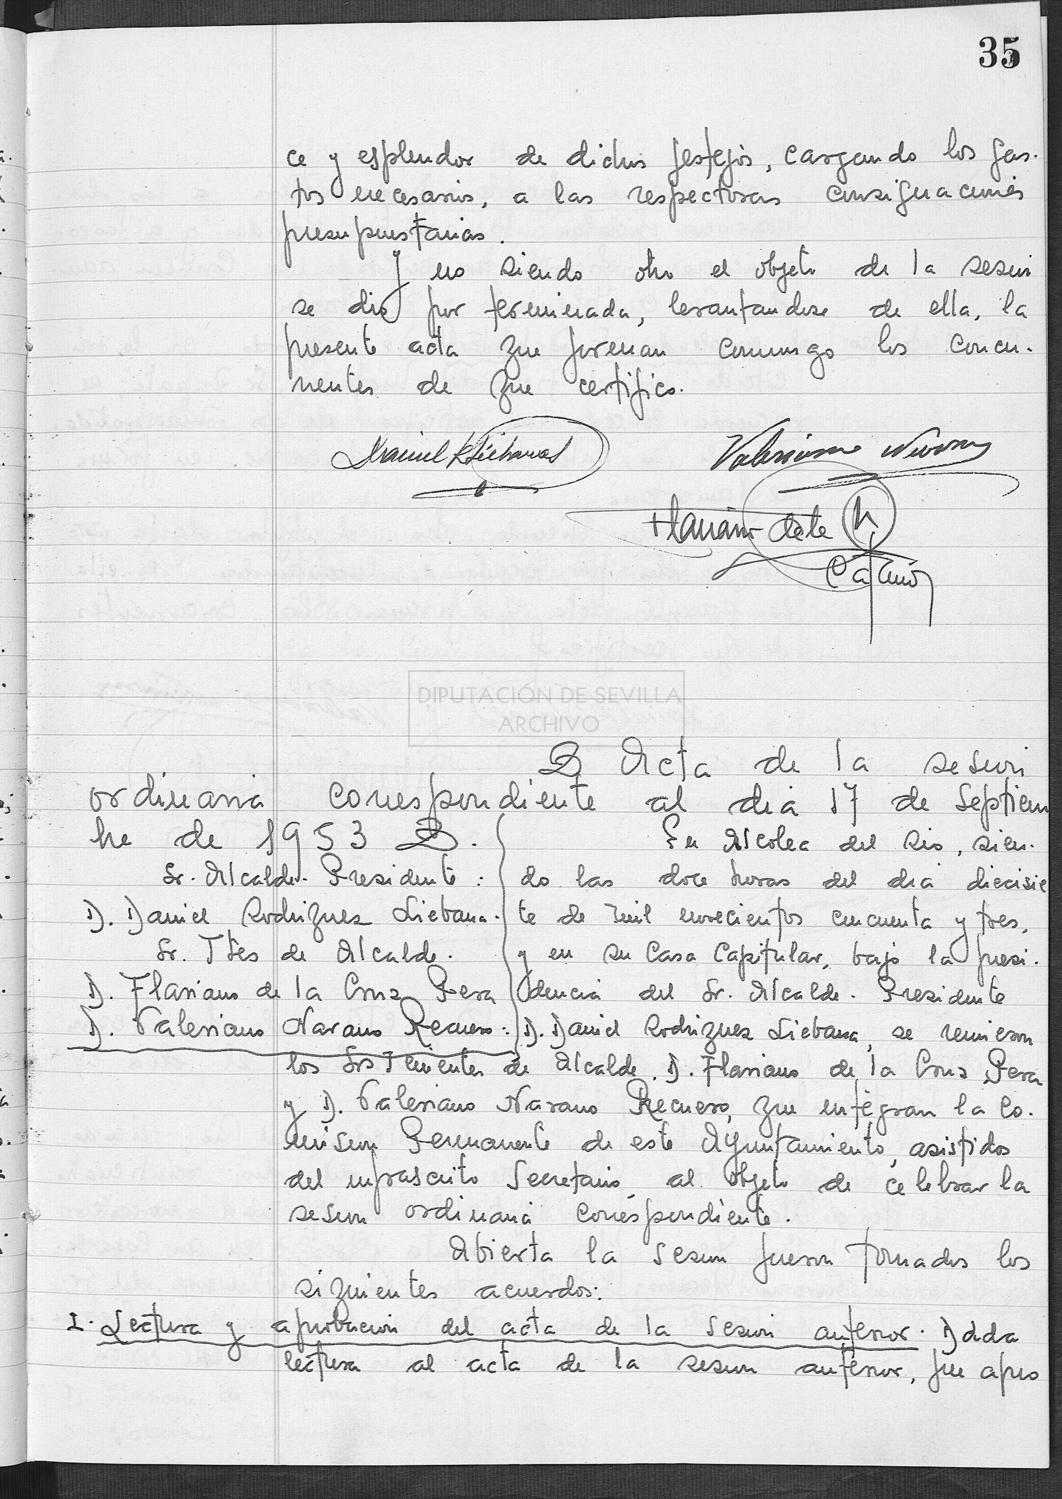 35
ce y esplendor de dichos festejos, cargando los gas-
tos necesarios, a las respectivas consignaciones
presupuestarias.
Y no siendo otro el objeto de la sesion
se dio por terminada, levantandose de ella, la
presente acta que firman conmigo los concu-
rrentes de que certifico.
Daniel R Liebanas
Valeriano Navarro
Flaviano de la
DIPUTACIÓN DE SEVILLA
ARCHIVO
Acta de la sesion
ordinaria correspondiente al dia 17 de Septiem
bre de 1953
Sr. Alcalde-Presidente:
D. Daniel Rodriguez Liebana.
Sr. Ttes de Alcalde.
D. Flaviano de la Cruz Pera
D. Valeriano Navarro Recuero:
En Alcolea del Rio, sien-
do las doce horas del dia diecisie
te de mil novecientos cincuenta y tres,
y en su Casa Capitular, bajo la presi-
dencia del Sr. Alcalde-Presidente
D. Daniel Rodriguez Liebana, se reunieron
los Srs Tenientes de Alcalde, D. Flaviano de la Cruz Pera
y D. Valeriano Navarro Recuero, que integran la Co-
mision Permanente de este Ayuntamiento, asistidos
del infrascrito Secretario, al objeto de celebrar la
sesion ordinaria correspondiente.
Abierta la sesion fueron tomados los
siguientes acuerdos:
I. Lectura y aprobacion del acta de la sesion anterior. Dada
lectura al acta de la sesion anterior, fue apro